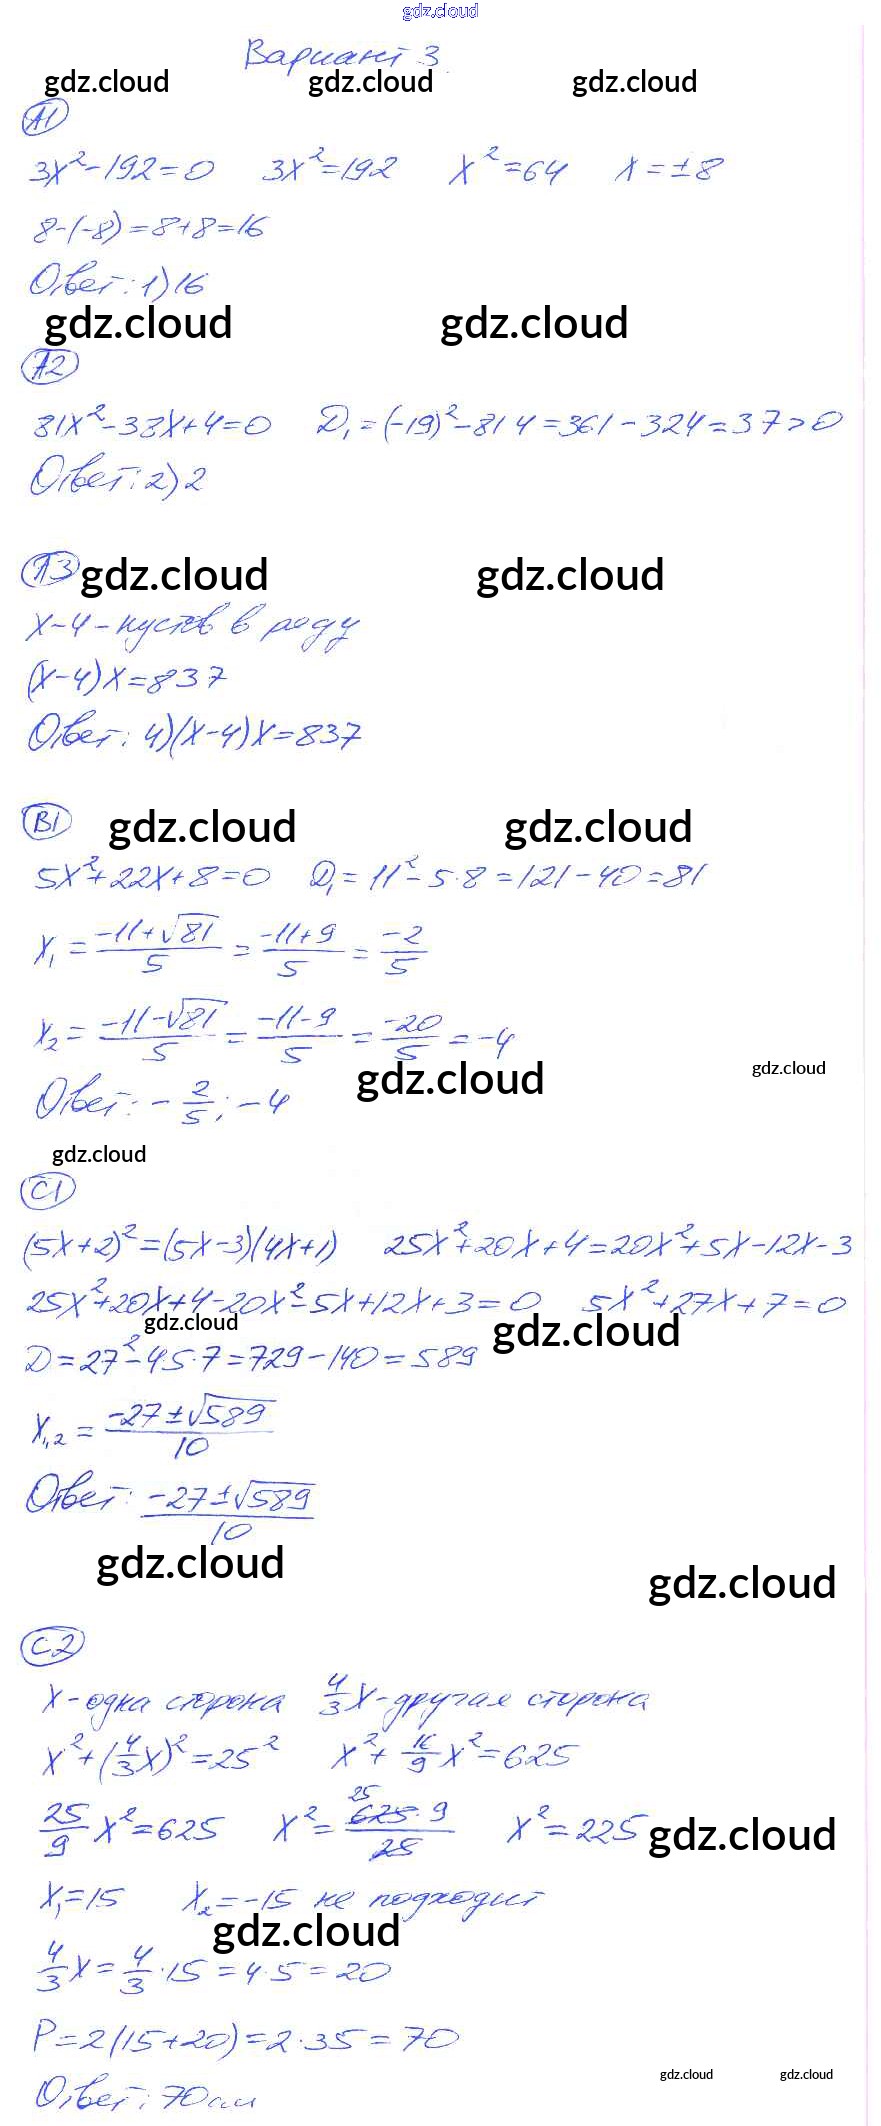 gdz.cloud
Вариант 3
gdz.cloud gdz.cloud gdz.cloud
A1
3x²-192=0 3x²=192 x²=64 x=±8
8-(-8)=8+8=16
Ответ: 1) 16
gdz.cloud gdz.cloud
A2
81x²-38x+4=0 D₁=(-19)²-81 4=361-324=37>0
Ответ: 2) 2
A3 gdz.cloud gdz.cloud
x-4-кустов в ряду
(x-4)x=837
Ответ: 4)(x-4)x=837
B1 gdz.cloud gdz.cloud
5x²+22x+8=0 D₁=11²-5·8=121-40=81
x₁=(-11+√81)/5=(-11+9)/5=-2/5
x₂=(-11-√81)/5=(-11-9)/5=-20/5=-4
gdz.cloud gdz.cloud
Ответ: -2/5; -4
gdz.cloud
C1
(5x+2)²=(5x-3)(4x+1) 25x²+20x+4=20x²+5x-12x-3
25x²+20x+4-20x²-5x+12x+3=0 5x²+27x+7=0
gdz.cloud gdz.cloud
D=27²-4·5·7=729-140=589
x₁,₂=(-27±√589)/10
Ответ: (-27±√589)/10
gdz.cloud gdz.cloud
C2
x-одна сторона 4/3x-другая сторона
x²+(4/3x)²=25² x²+16/9x²=625
25/9x²=625 x²=625·9/25 25 x²=225 gdz.cloud
x₁=15 x₂=-15 не подходит
gdz.cloud
4/3x=4/3·15=4·5=20
P=2(15+20)=2·35=70
gdz.cloud gdz.cloud
Ответ: 70см